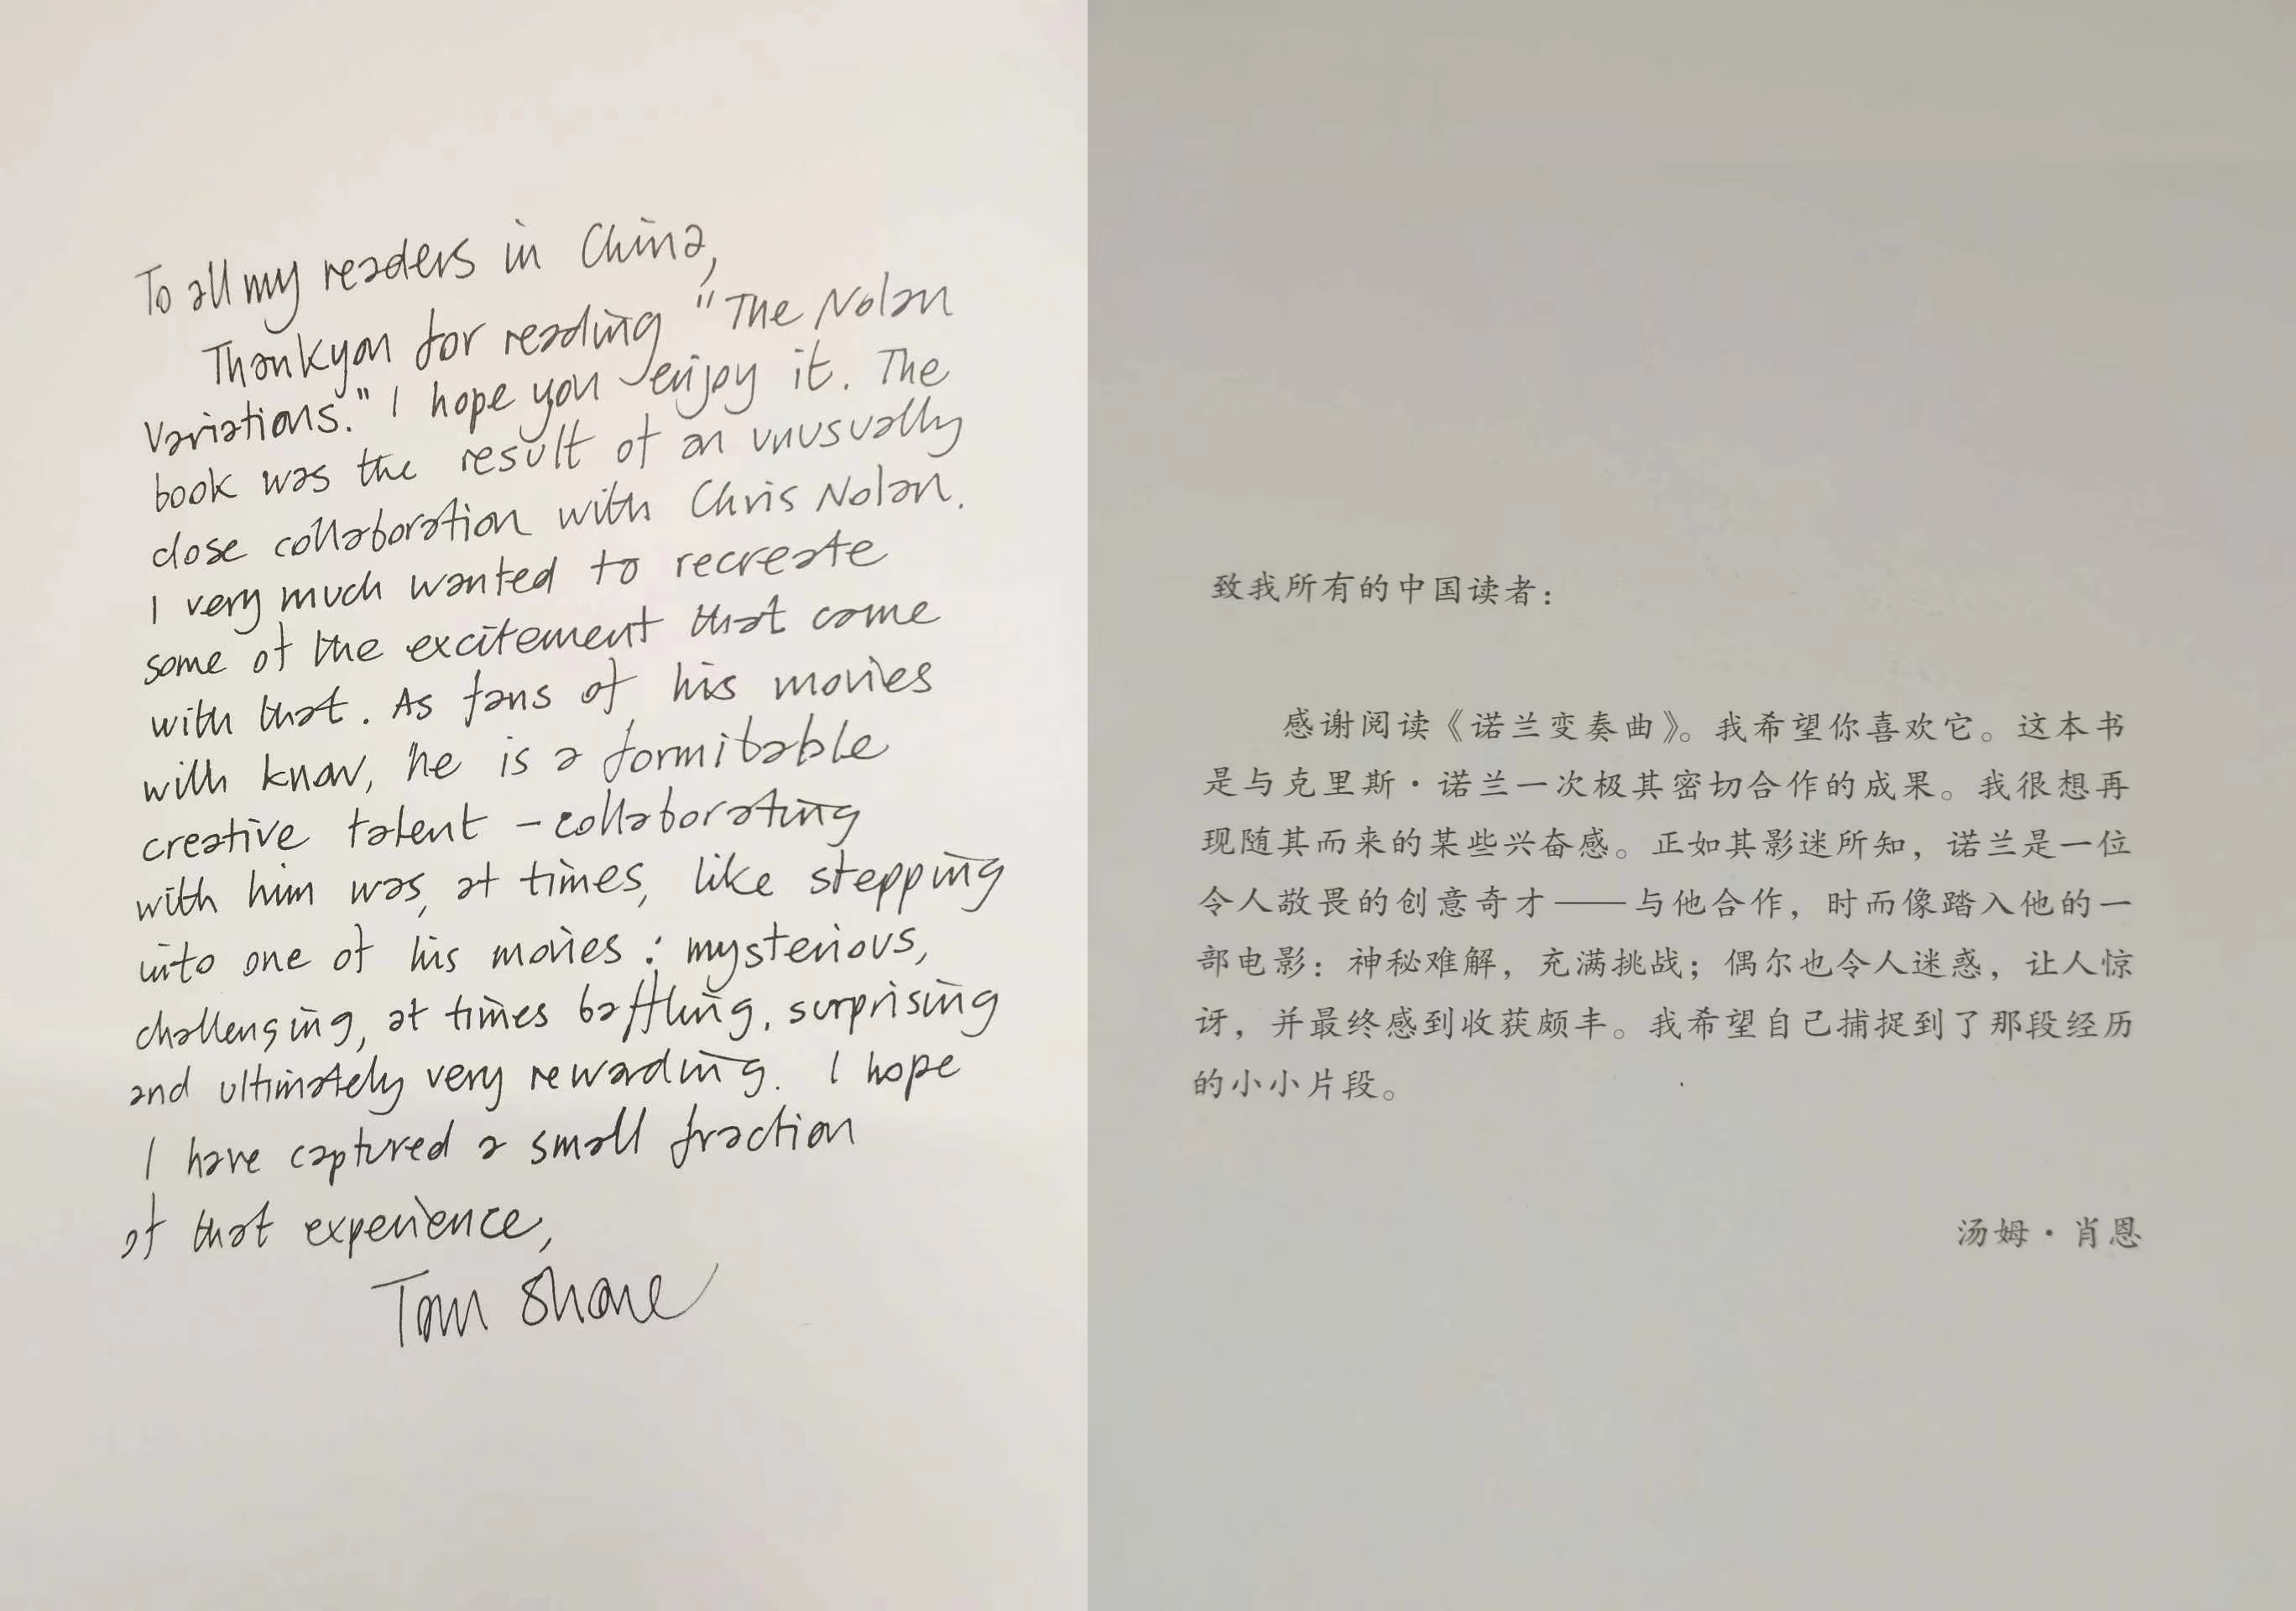 To all my readers in China,
Thankyou for reading "The Nolan
Variations." I hope you enjoy it. The
book was the result of an unusually
close collaboration with Chris Nolan.
I very much wanted to recreate
some of the excitement that came
with that. As fans of his movies
with know, he is a formitable
creative talent – collaborating
with him was, at times, like stepping
into one of his movies : mysterious,
challenging, at times baffling, surprising
and ultimately very rewarding. I hope
I have captured a small fraction
of that experience,
Tom Shone
致我所有的中国读者：
感谢阅读《诺兰变奏曲》。我希望你喜欢它。这本书
是与克里斯·诺兰一次极其密切合作的成果。我很想再
现随其而来的某些兴奋感。正如其影迷所知，诺兰是一位
令人敬畏的创意奇才——与他合作，时而像踏入他的一
部电影：神秘难解，充满挑战；偶尔也令人迷惑，让人惊
讶，并最终感到收获颇丰。我希望自己捕捉到了那段经历
的小小片段。
汤姆·肖恩